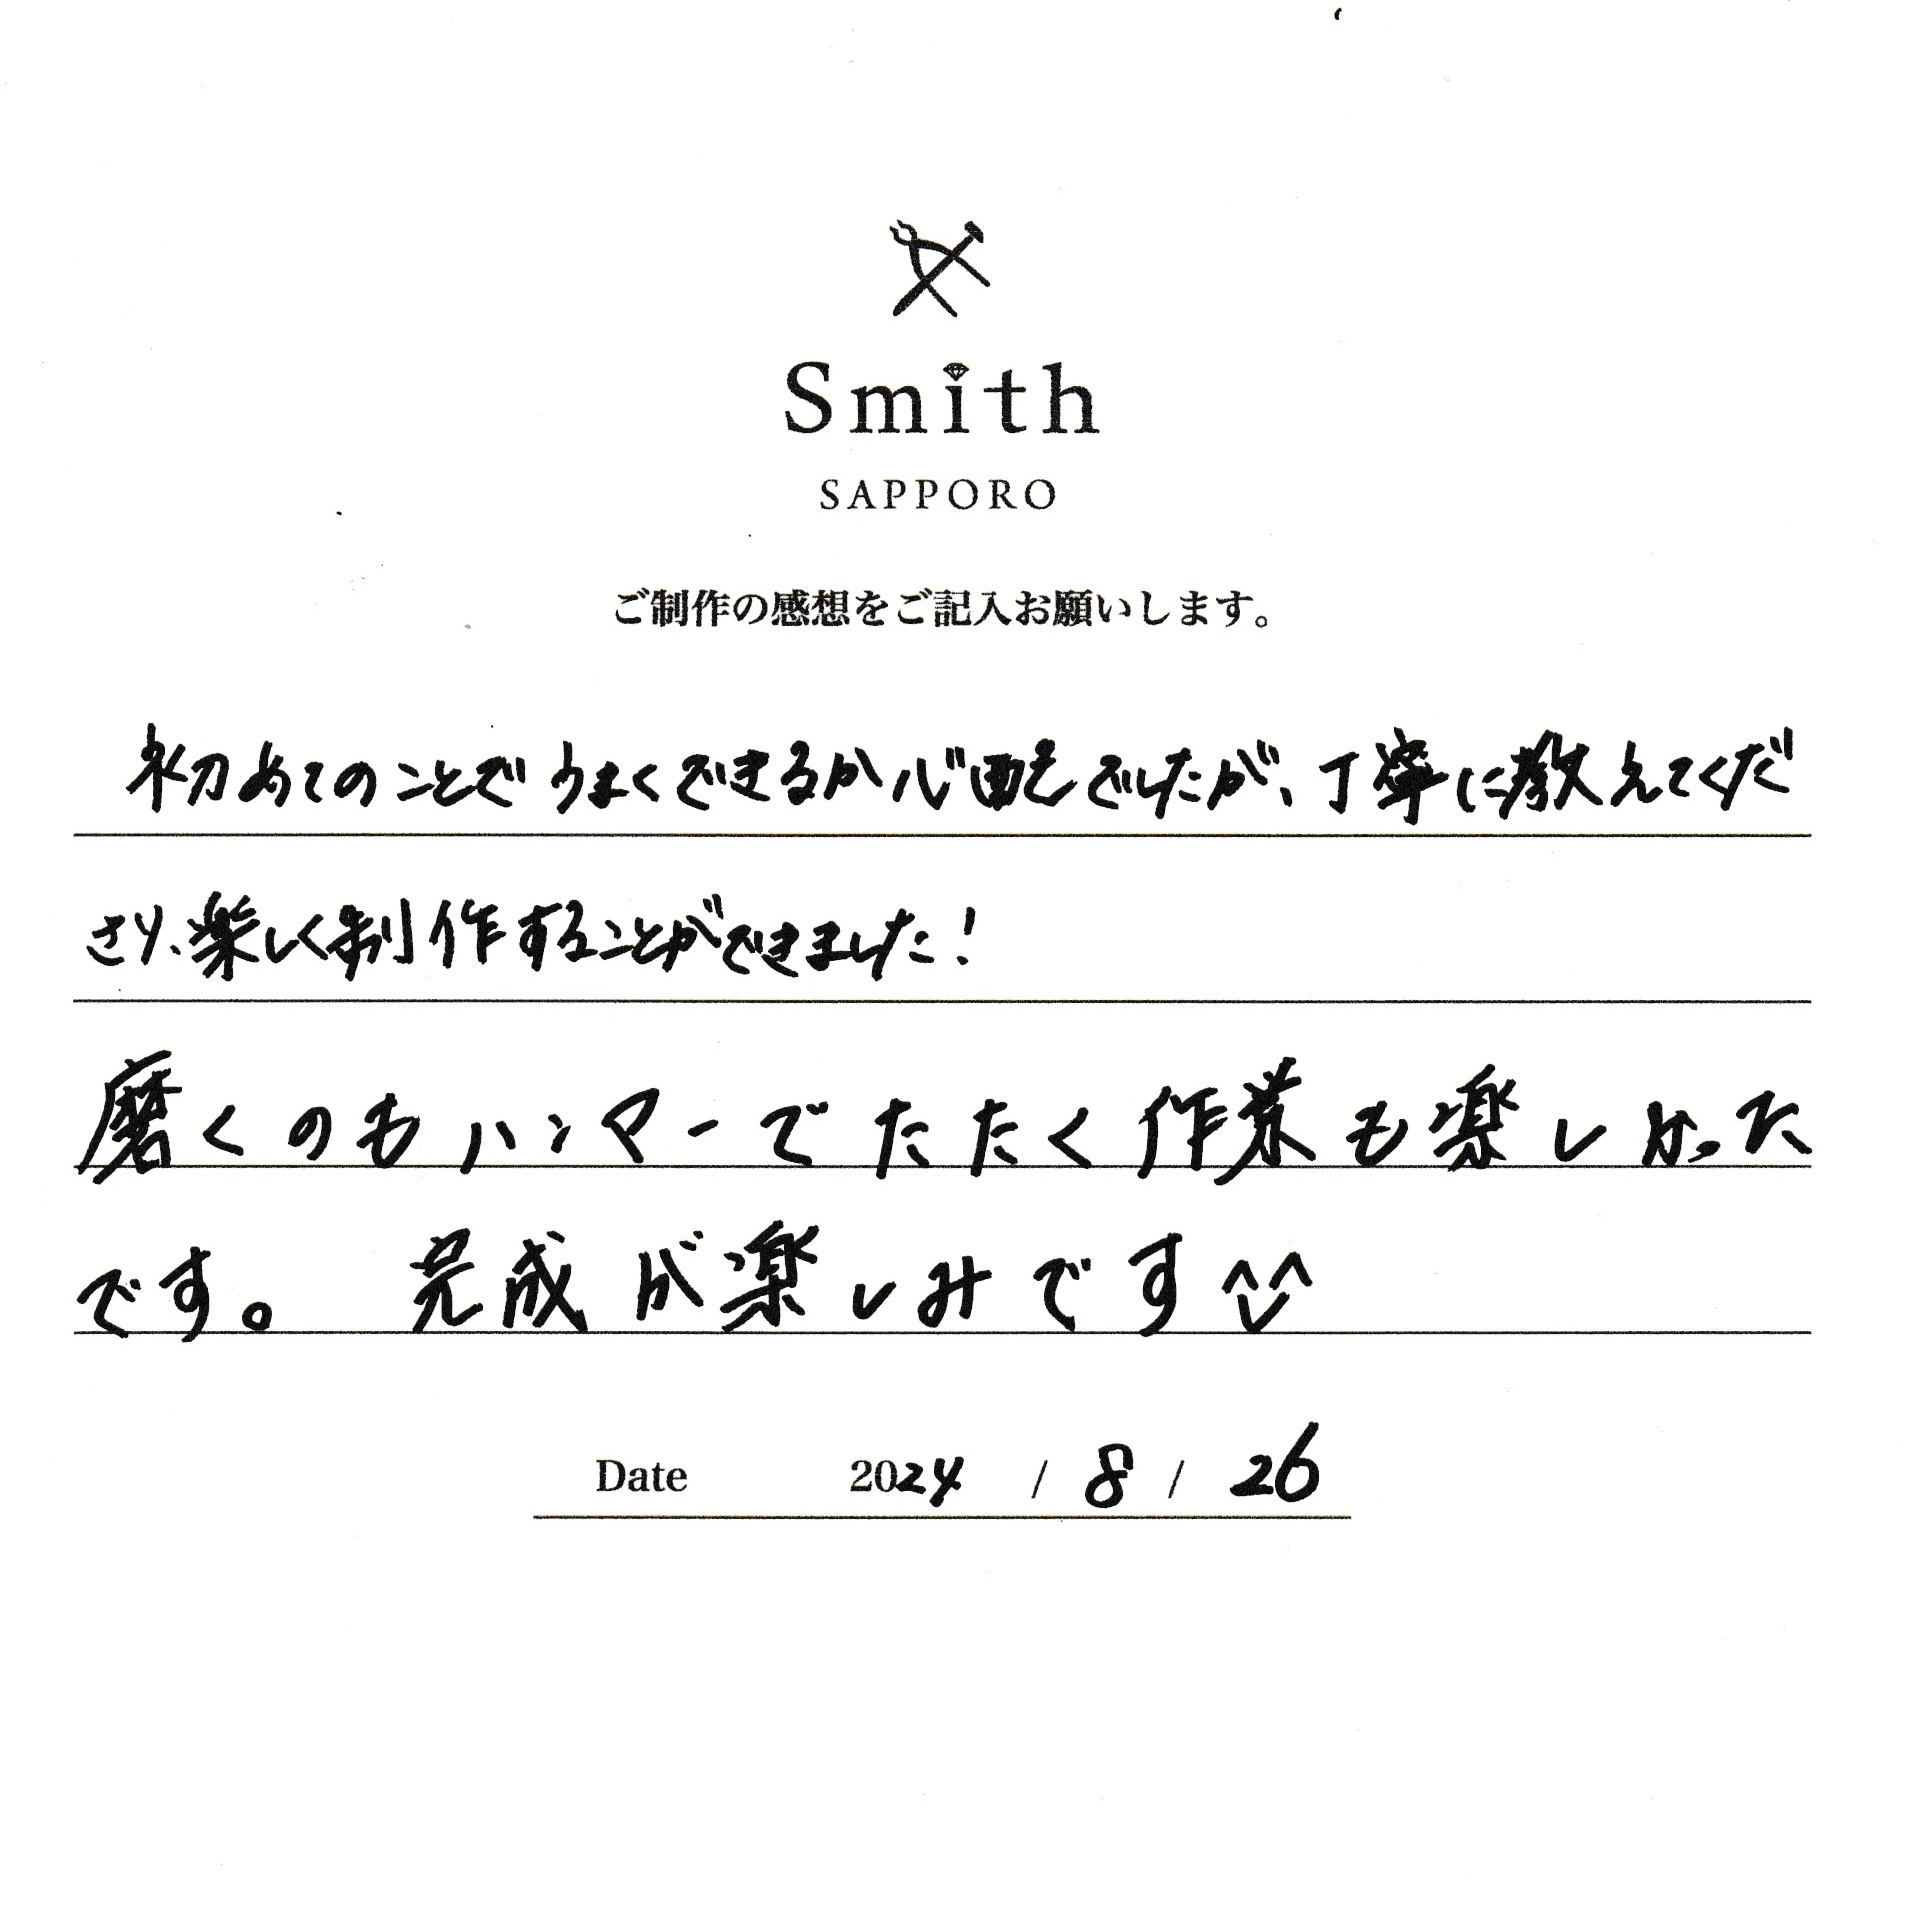 Smith
SAPPORO
ご制作の感想をご記入お願いします。
初めてのことでうまくできるか心配でしたが、丁寧に教えてくだ
さり、楽しく制作することができました!
磨くのもハンマーでたたく作業も楽しかった
です。 完成が楽しみです^^
Date 2024 / 8 / 26